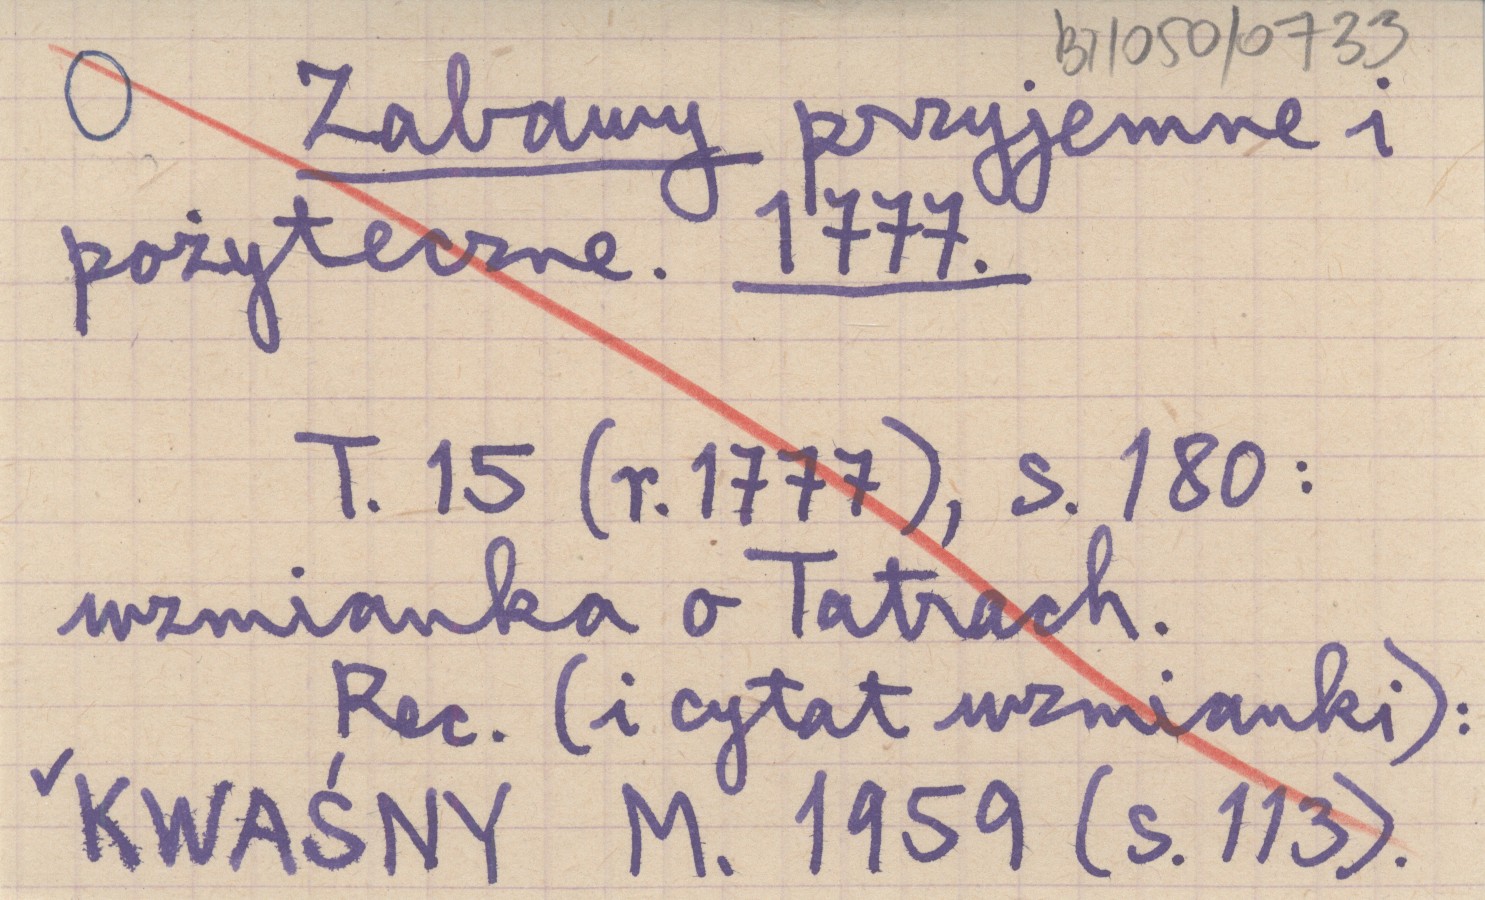 BT/050/0733
O Zabawy przyjemne i
pożyteczne. 1777.
T. 15 (r. 1777), s. 180:
wzmianka o Tatrach.
Rec. (i cytat wzmianki):
✓KWAŚNY M. 1959 (s. 113).